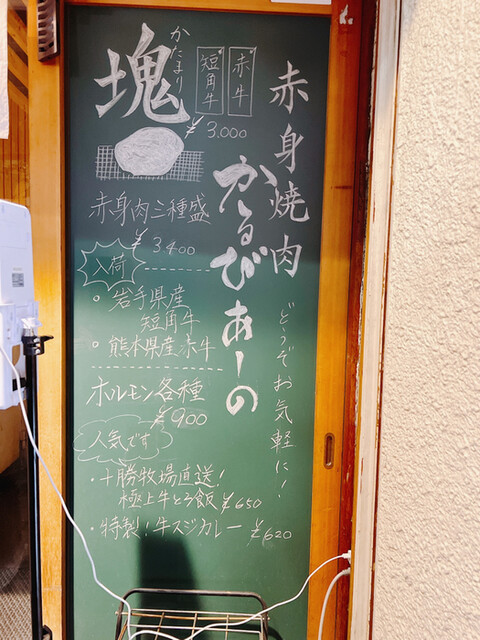 赤身焼肉
かるびあーの
どうぞお気軽に!
赤牛
短角牛
かたまり
塊
¥3,000
赤身肉三種盛
¥3,400
入荷
・岩手県産
短角牛
・熊本県産赤牛
ホルモン各種
¥900
人気です
・十勝牧場直送!
極上牛とろ飯¥650
・特製!牛スジカレー¥620